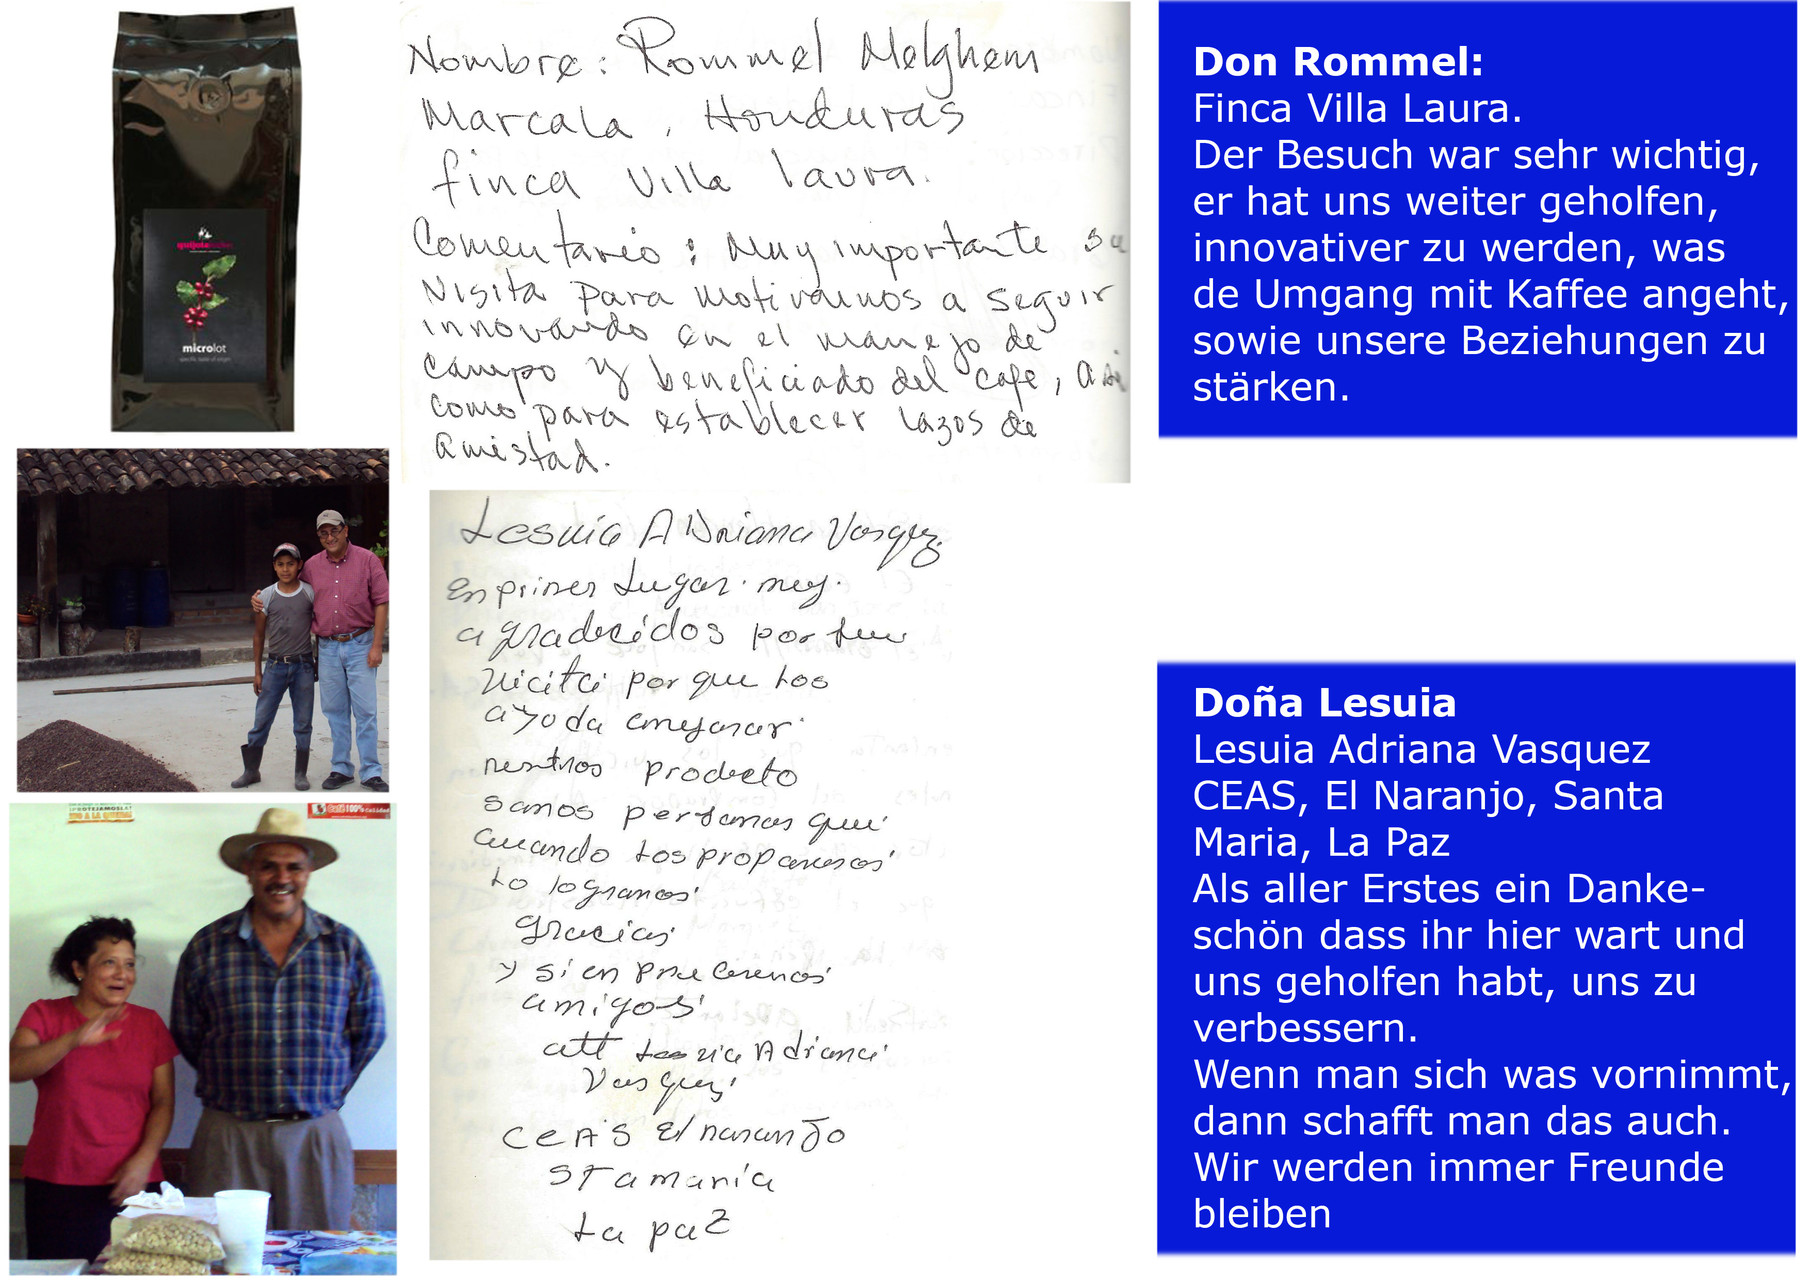 quijote
microlot
specific taste of origin
Nombre: Rommel Melghem
Marcala, Honduras
finca Villa laura.
Comentario: Muy importante su
visita para motivarnos a seguir
innovando en el manejo de
campo y beneficiado del cafe, asi
como para establecer lazos de
amistad.
Don Rommel:
Finca Villa Laura.
Der Besuch war sehr wichtig,
er hat uns weiter geholfen,
innovativer zu werden, was
de Umgang mit Kaffee angeht,
sowie unsere Beziehungen zu
stärken.
¡PROTEJAMOSLA!
NO A LA QUEMA!
Café 100% Calidad
Lesuia Adriana Vasquez
En primer Lugar. muy.
agradecidos por su
vicita por que Los
ayoda amejorar
nestros producto
somos personas que
cuando Los proponemos
Lo logramos
gracias
y sienpre seremos
amigos
att Lesuia Adriana
Vasquez
CEAS El naranJo
STa maria
La paz
Doña Lesuia
Lesuia Adriana Vasquez
CEAS, El Naranjo, Santa
Maria, La Paz
Als aller Erstes ein Danke-
schön dass ihr hier wart und
uns geholfen habt, uns zu
verbessern.
Wenn man sich was vornimmt,
dann schafft man das auch.
Wir werden immer Freunde
bleiben